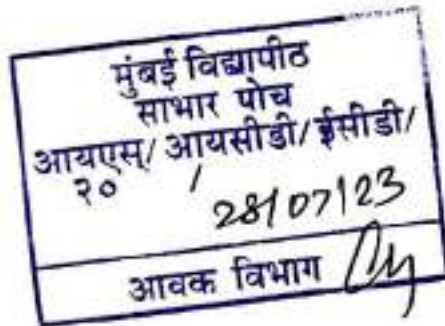 मुंबई विद्यापीठ
साभार पोच
आयएस/ आयसीडी/ ईसीडी/
२० /
28/07/23
आवक विभाग